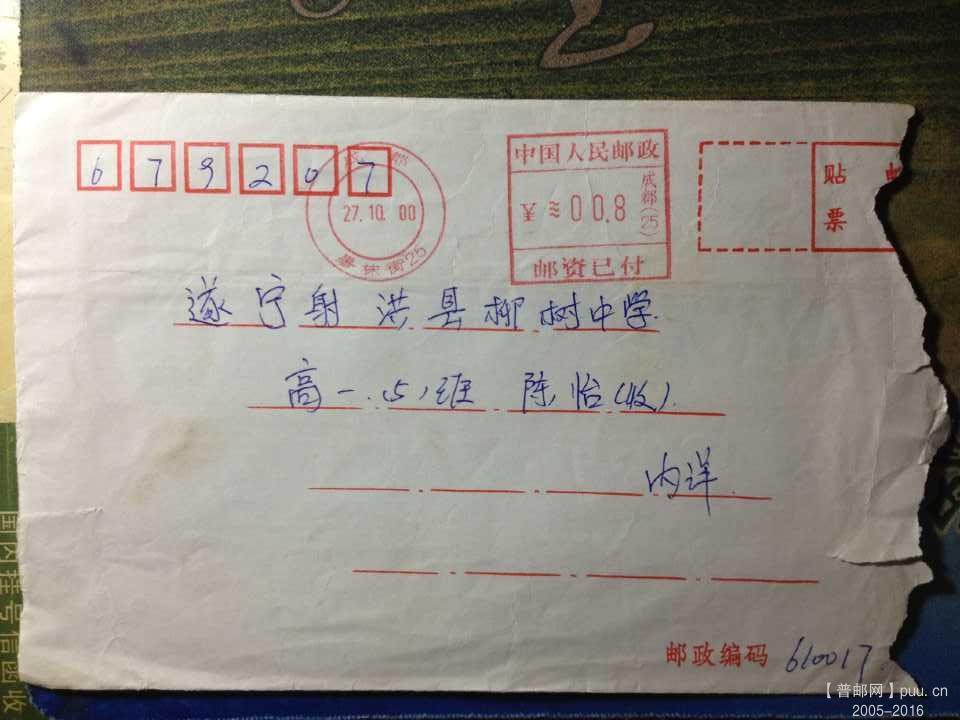 6 7 9 2 0 7
27.10.00
25
中国人民邮政
成都(25)
¥≈00.8
邮资已付
贴
票
遂宁射洪县柳树中学.
高一.(5)班 陈怡(收).
内详.
邮政编码 610017
国内挂号信函收
【普邮网】puu.cn
2005-2016